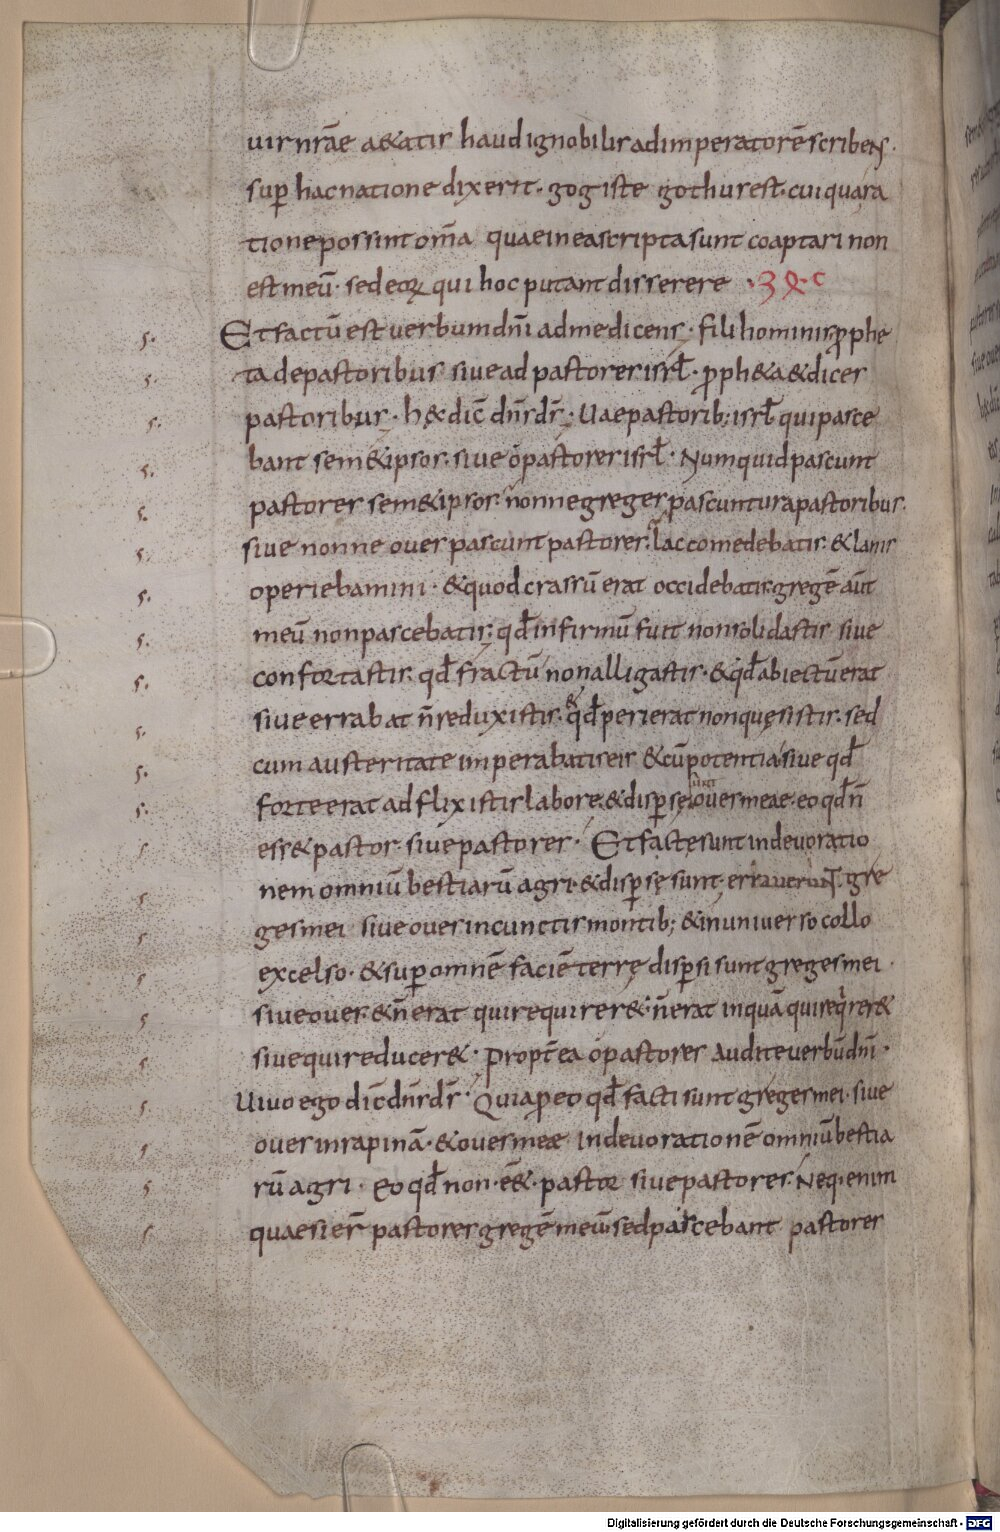 uir nr̄ae aetatis haud ignobilis ad imperatorē scribens.
sup̄ hac natione dixerit. gog iste gothus est. cui qua ra
tione possint om̄a quae in ea scripta sunt coaptari non
est meū. sed eoꝝ qui hoc putant disserere
Et factū est uerbum dn̄i ad me dicens. fili hominis ꝓphe
ta de pastoribus siue ad pastores isrl̄. ꝓpheta & dices
pastoribus. h& dic̄ dn̄s ds̄. Uae pastorib; isrl̄ qui pasce
bant sem&ipsos. siue o pastores isrl̄. Numquid pascunt
pastores sem&ipsos. nonne greges pascuntur a pastoribus.
siue nonne oues pascunt pastores. lac comedebatis. & lanis
operiebamini. & quod crassū erat occidebatis. gregē aūt
meū non pascebatis. qd̄ infirmū fuit non solidastis siue
confortastis. qd̄ fractū non alligastis. & qd̄ abiectū erat
siue errabat n̄ reduxistis. & qd̄ perierat non quęsistis. sed
cum austeritate imperabatis eis & cū potentia siue qd̄
forte erat adflixistis labore. & disꝑsę sunt oues meae. eo qd̄ n̄
ess& pastor. siue pastores. Et factę sunt in deuoratio
nem omniū bestiarū agri. & disꝑsę sunt. errauerunt gre
ges mei siue oues in cunctis montib; & in uniuerso collo
excelso. & suꝑ omnē faciē terrę disꝑsi sunt greges mei.
siue oues. & n̄ erat qui requirer&. n̄ erat inquā qui reqrer&
siue qui reducer&. Propt̄ea o pastores audite uerbū dn̄i.
Uiuo ego dic̄ dn̄s ds̄. Quia ꝓ eo qd̄ facti sunt greges mei. siue
oues in rapinā. & oues meae in deuorationē omniū bestia
rū agri. eo qd̄ non. ēe&. pastor siue pastores. Neq. enim
quaesier̄ pastores gregē meū. sed pascebant pastores
Digitalisierung gefördert durch die Deutsche Forschungsgemeinschaft - DFG